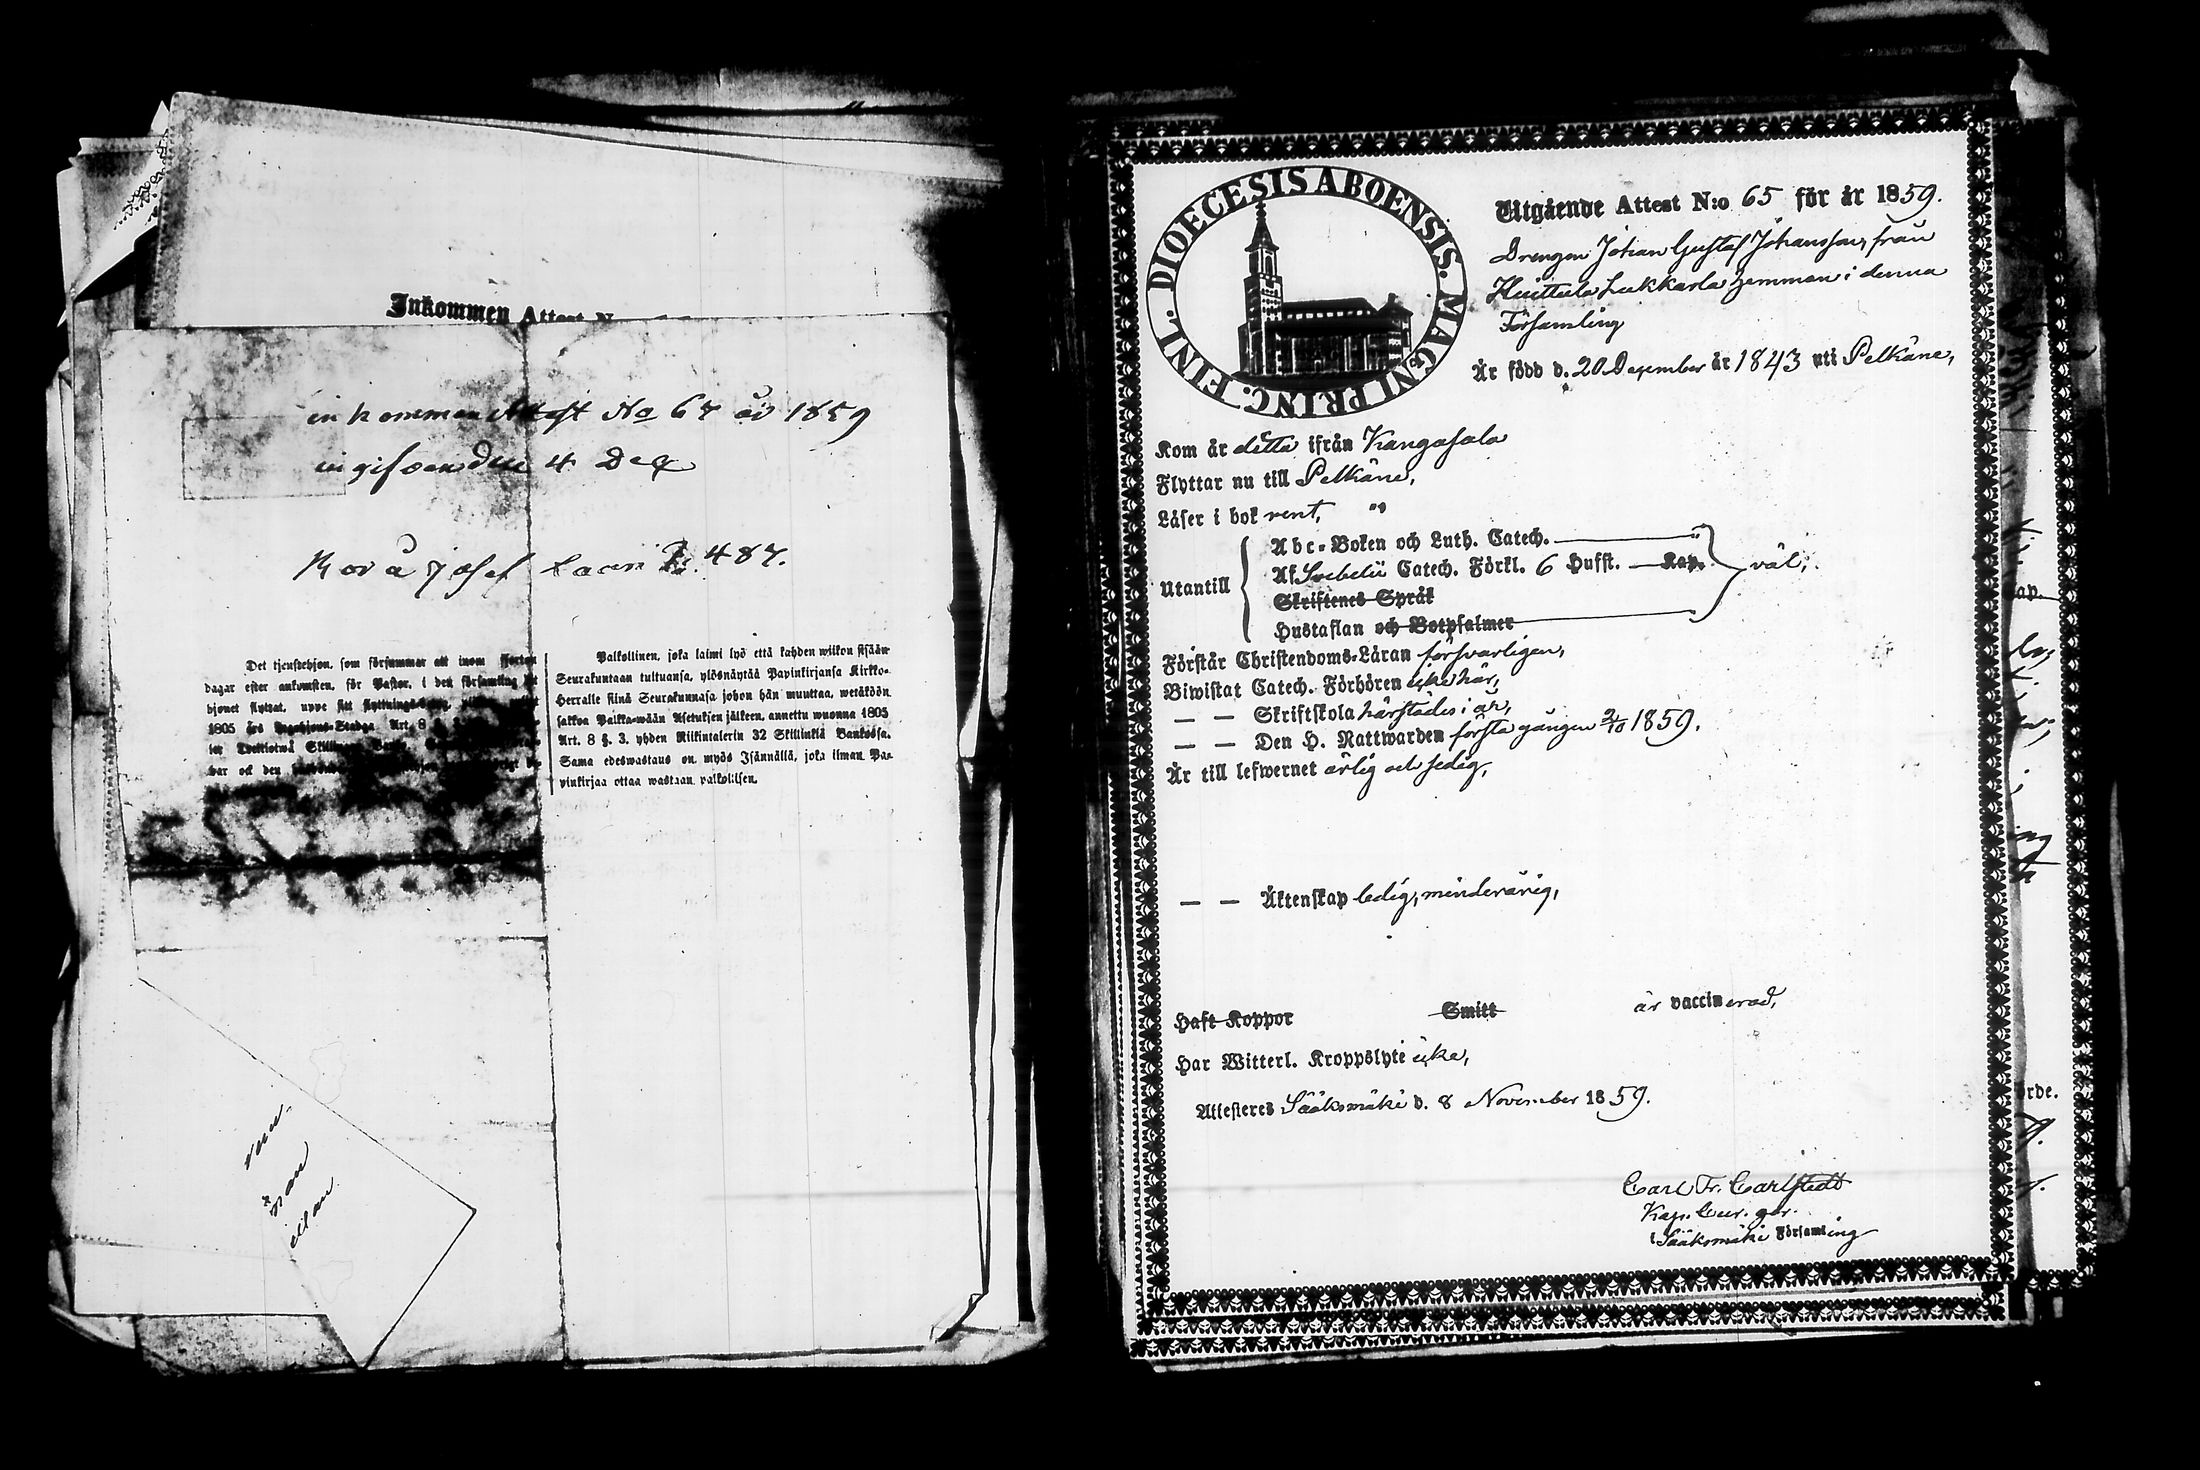 Inkommen Attest N
inkommen Attest No 67 år 1859
ingifven den 4 Dec
487.
Det tjenstehjon, som försummar att inom fjorton
dagar efter ankomsten, för Pastor, i den församling
hjonet flyttat, uppte sitt
1805 års Legohjons-Stadga Art. 8 §
Skillingar Banco
här ock den
Palkollinen, joka laimi lyö että kahden wiikon sisään
Seurakuntaan tultuansa, ylösnäytää Papinkirjansa Kirkko-
Herralle siinä Seurakunnasa johon hän muuttaa, wetäköön
sakkoa Palkka-wään Asetuksen jälkeen, annettu wuonna 1805
Art. 8 §. 3. yhden Riikintalerin 32 Skillinkiä Bankossa.
Sama edeswastaus on myös Isännällä, joka ilman Pa-
pinkirjaa ottaa wastaan palkolisen.
DIOECESIS ABOENSIS. MAGNI PRINC. FINL.
Utgående Attest N:o 65 för år 1859.
Drengen Johan Gustaf Johansson, från
Huittula Lukkarla hemman i denna
Församling
Är född d. 20 December år 1843 uti Pelkäne,
Kom år detta ifrån Kangasala
Flyttar nu till Pelkäne,
Läser i bok rent, "
Utantill
Abc-Boken och Luth. Catech.
Af Svebelii Catech. Förkl. 6 Hufst. Kap. väl,
Skriftenes Språk
Hustaflan och Botpsalmer
Förstår Christendoms-Läran försvarligen,
Biwistat Catech. Förhören icke här,
— — Skriftskola härstädes i år,
— — Den H. Nattwarden första gången 2/10 1859.
Är till lefwernet ärlig och sedig,
— — Äktenskap ledig, minderårig,
Haft Koppor Smitt är vaccinerad,
Har Witterl. Kroppslyte icke,
Attesteres Sääksmäki d. 8 November 1859.
Carl Fr. Carlstedt
Kap. Cur. ger.
i Sääksmäki Församling